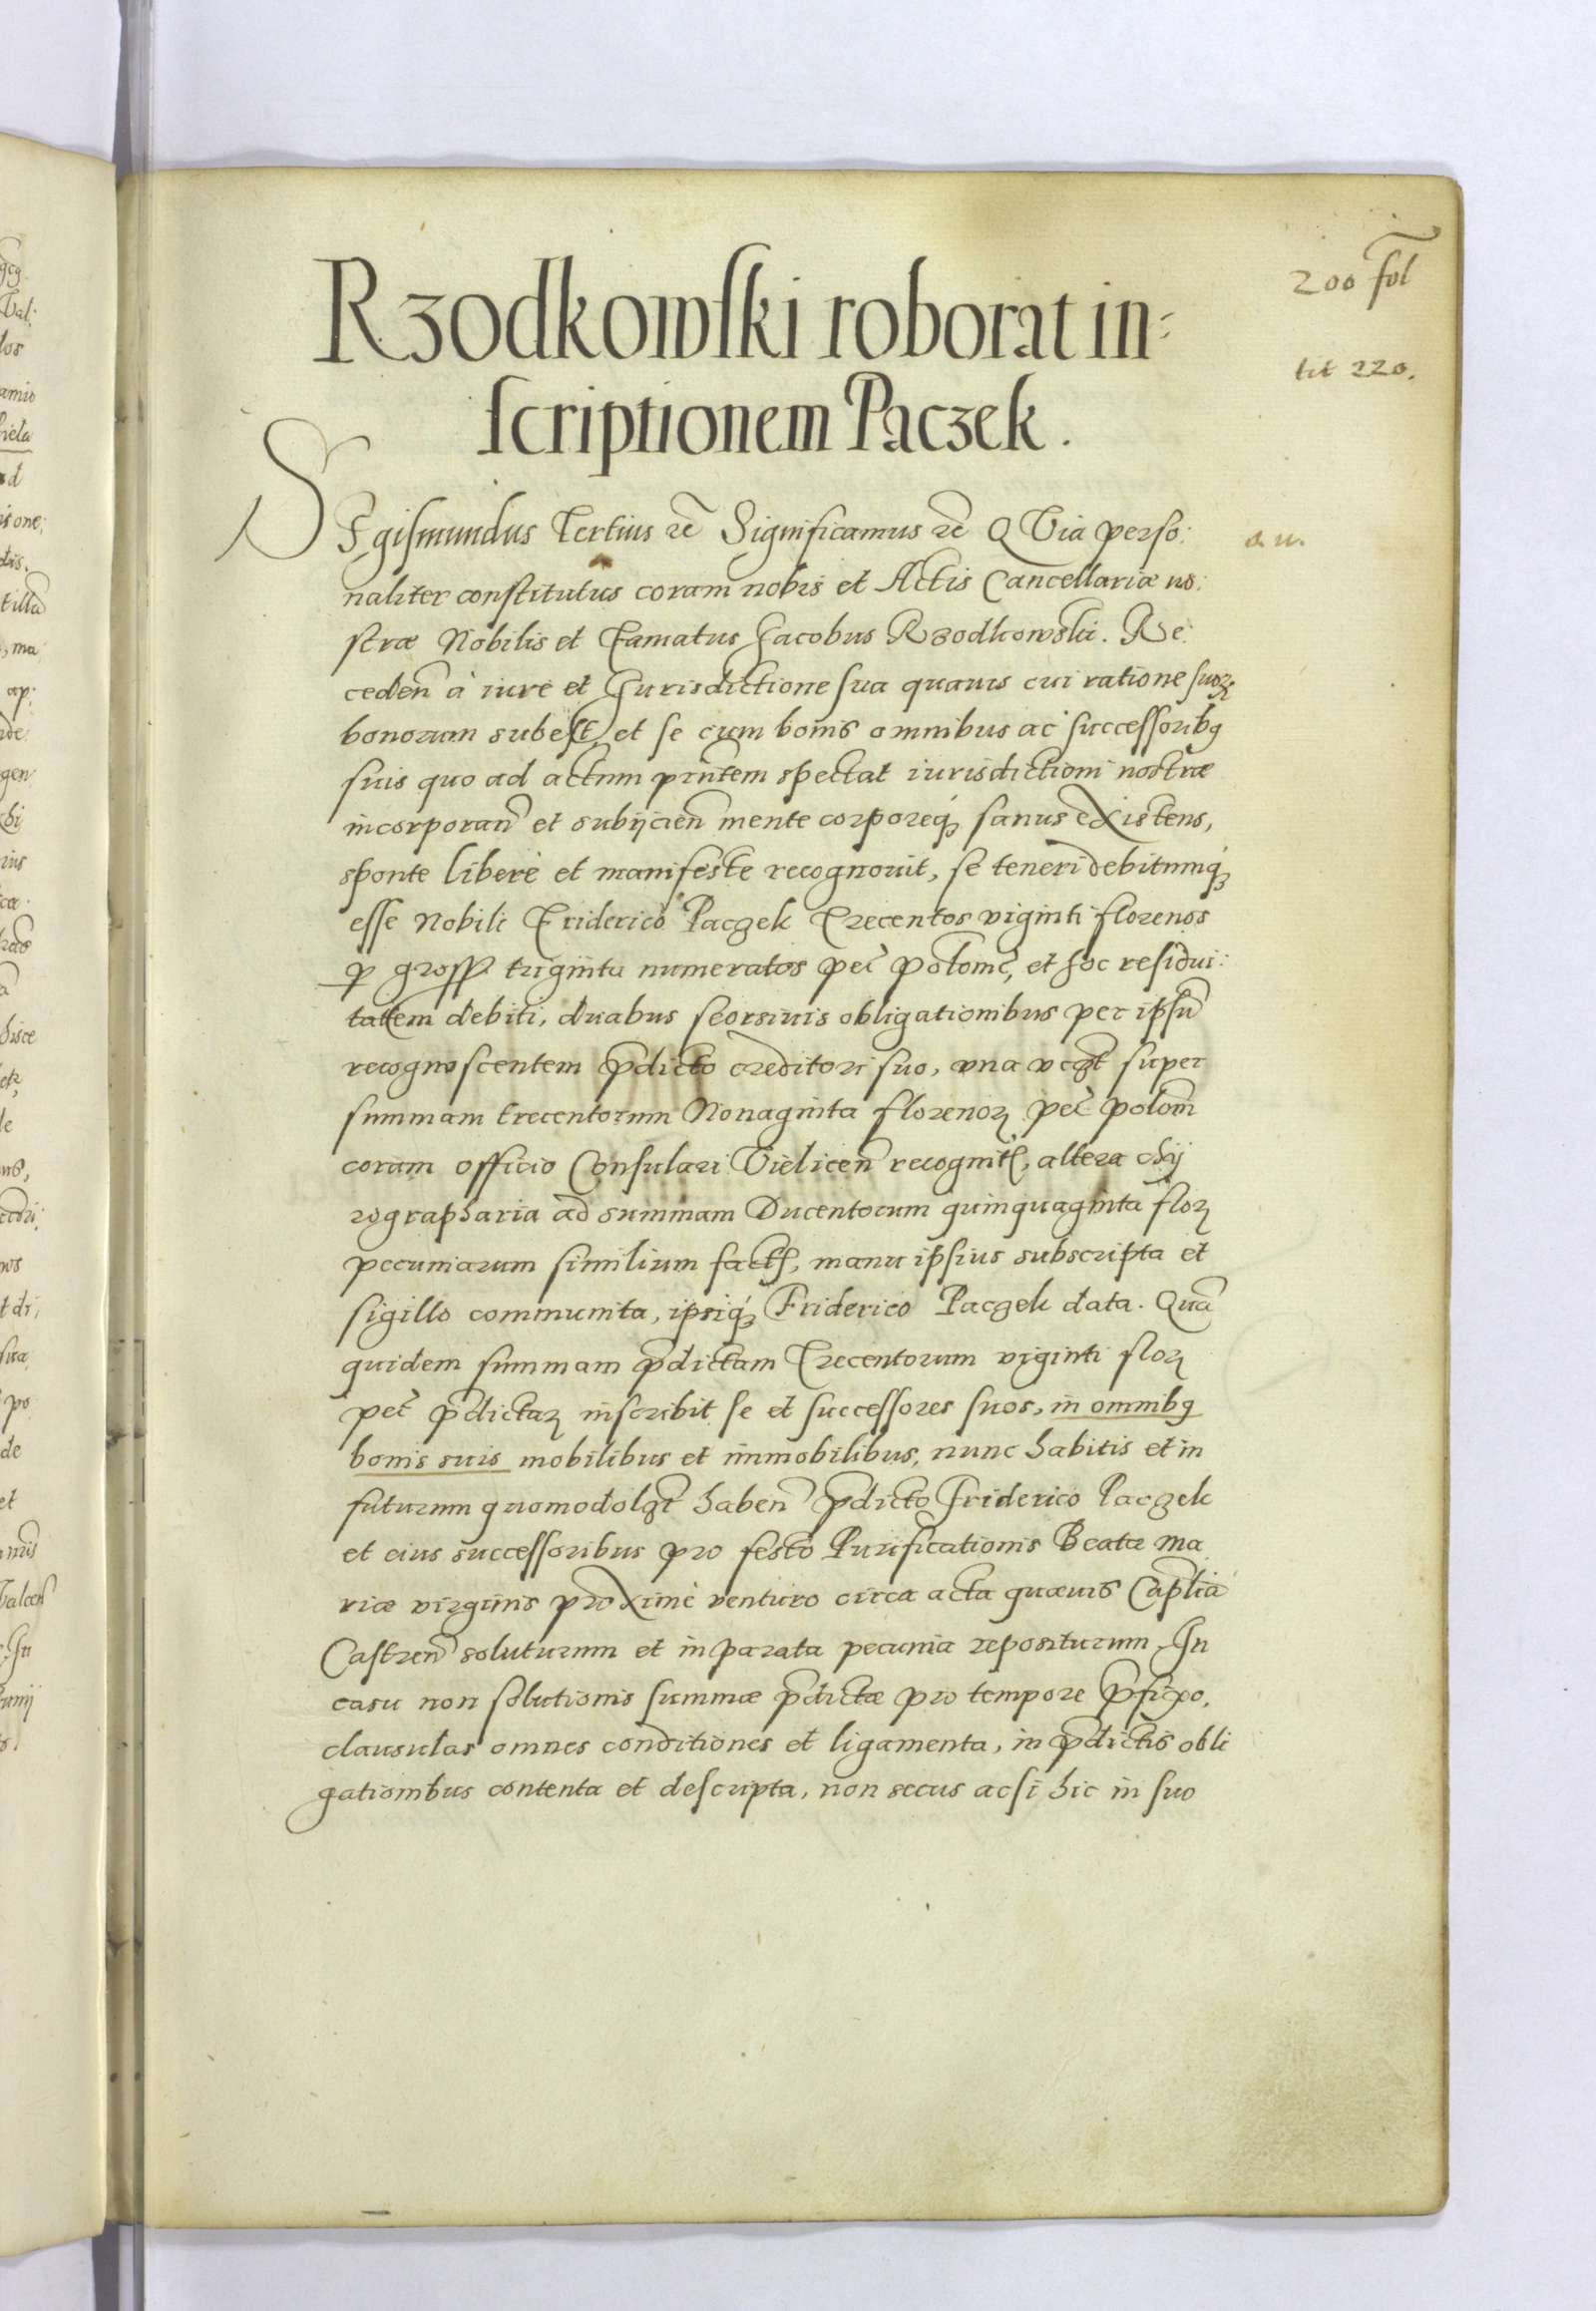 200 fol
Rzodkowski roborat in:
tit 220.
scriptionem Paczek.
Sigismundus Tertius rc̄ Significamus rc̄ QVia perso:
naliter constitutus coram nobis et Actis Cancellariæ no:
stræ Nobilis et Famatus Jacobus Rzodkowski. Re:
ceden̄ à iure et Jurisdictione sua quavis cui ratione suoꝝ
bonorum subest, et se cum bonis omnibus ac successoribꝯ
suis quo ad actum pn̄tem spectat iurisdictioni nostræ
incorporan̄ et subijcien̄ mente corporeqꝫ sanus existens,
sponte liberè et manifeste recognovit, se teneri debitumqꝫ
esse Nobili Friderico Paczek Trecentos viginti florenos
ꝑ gross. triginta numeratos pec̄ Polonic̄, et hoc residui:
tatem debiti, duabus seorsivis obligationibus per ipsū
recognoscentem p̄dicto creditori suo, una vczt̄ super
summam trecentorum Nonaginta florenoꝝ pec̄ polon̄
coram officio Consulari Vielicen̄ recognitꝭ, altera chÿ
rographaria ad summam Ducentorum quinquaginta floꝝ
pecuniarum similium factꝭ, manu ipsius subscripta et
sigillo communita, ipsiqꝫ Friderico Paczek data. Quā
quidem summam p̄dictam Trecentorum viginti floꝝ
pec̄ p̄dictaꝝ inscribit se et successores suos, in omnibꝯ
bonis suis mobilibus et immobilibus, nunc habitis et in
futurum quomodolꝫt̄ haben̄ p̄dicto Friderico Paczek
et eius successoribus pro festo Purificationis Beatæ Ma
riæ virginis proximè venturo circa acta quævis Cap̄lia
Castren̄ soluturum et in parata pecunia repositurum. In
casu non solutionis summæ p̄dictæ pro tempore p̄fixo,
clausulas omnes conditiones et ligamenta, in p̄dictis obli
gationibus contenta et descripta, non secus acsi hic in suo